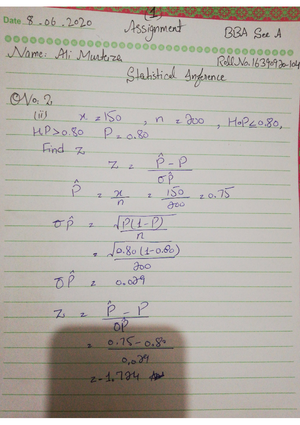 (1
Date 8.06.2020 Assignment BBA Sec A
Name. Ali Murtaza Roll No. 16390920-104
Statistical Inference
Q No. 2
(ii) x = 150 , n = 200 , HoP≤0.80,
HP>0.80 P = 0.80
Find Z
Z = P̂ - P
σP̂
P̂ = x/n = 150/200 = 0.75
σP̂ = √P(1-P)/n
= √0.80(1-0.80)/200
σP̂ = 0.029
Z = P̂ - P
σP̂
= 0.75 - 0.80
0.029
= -1.724 Ans